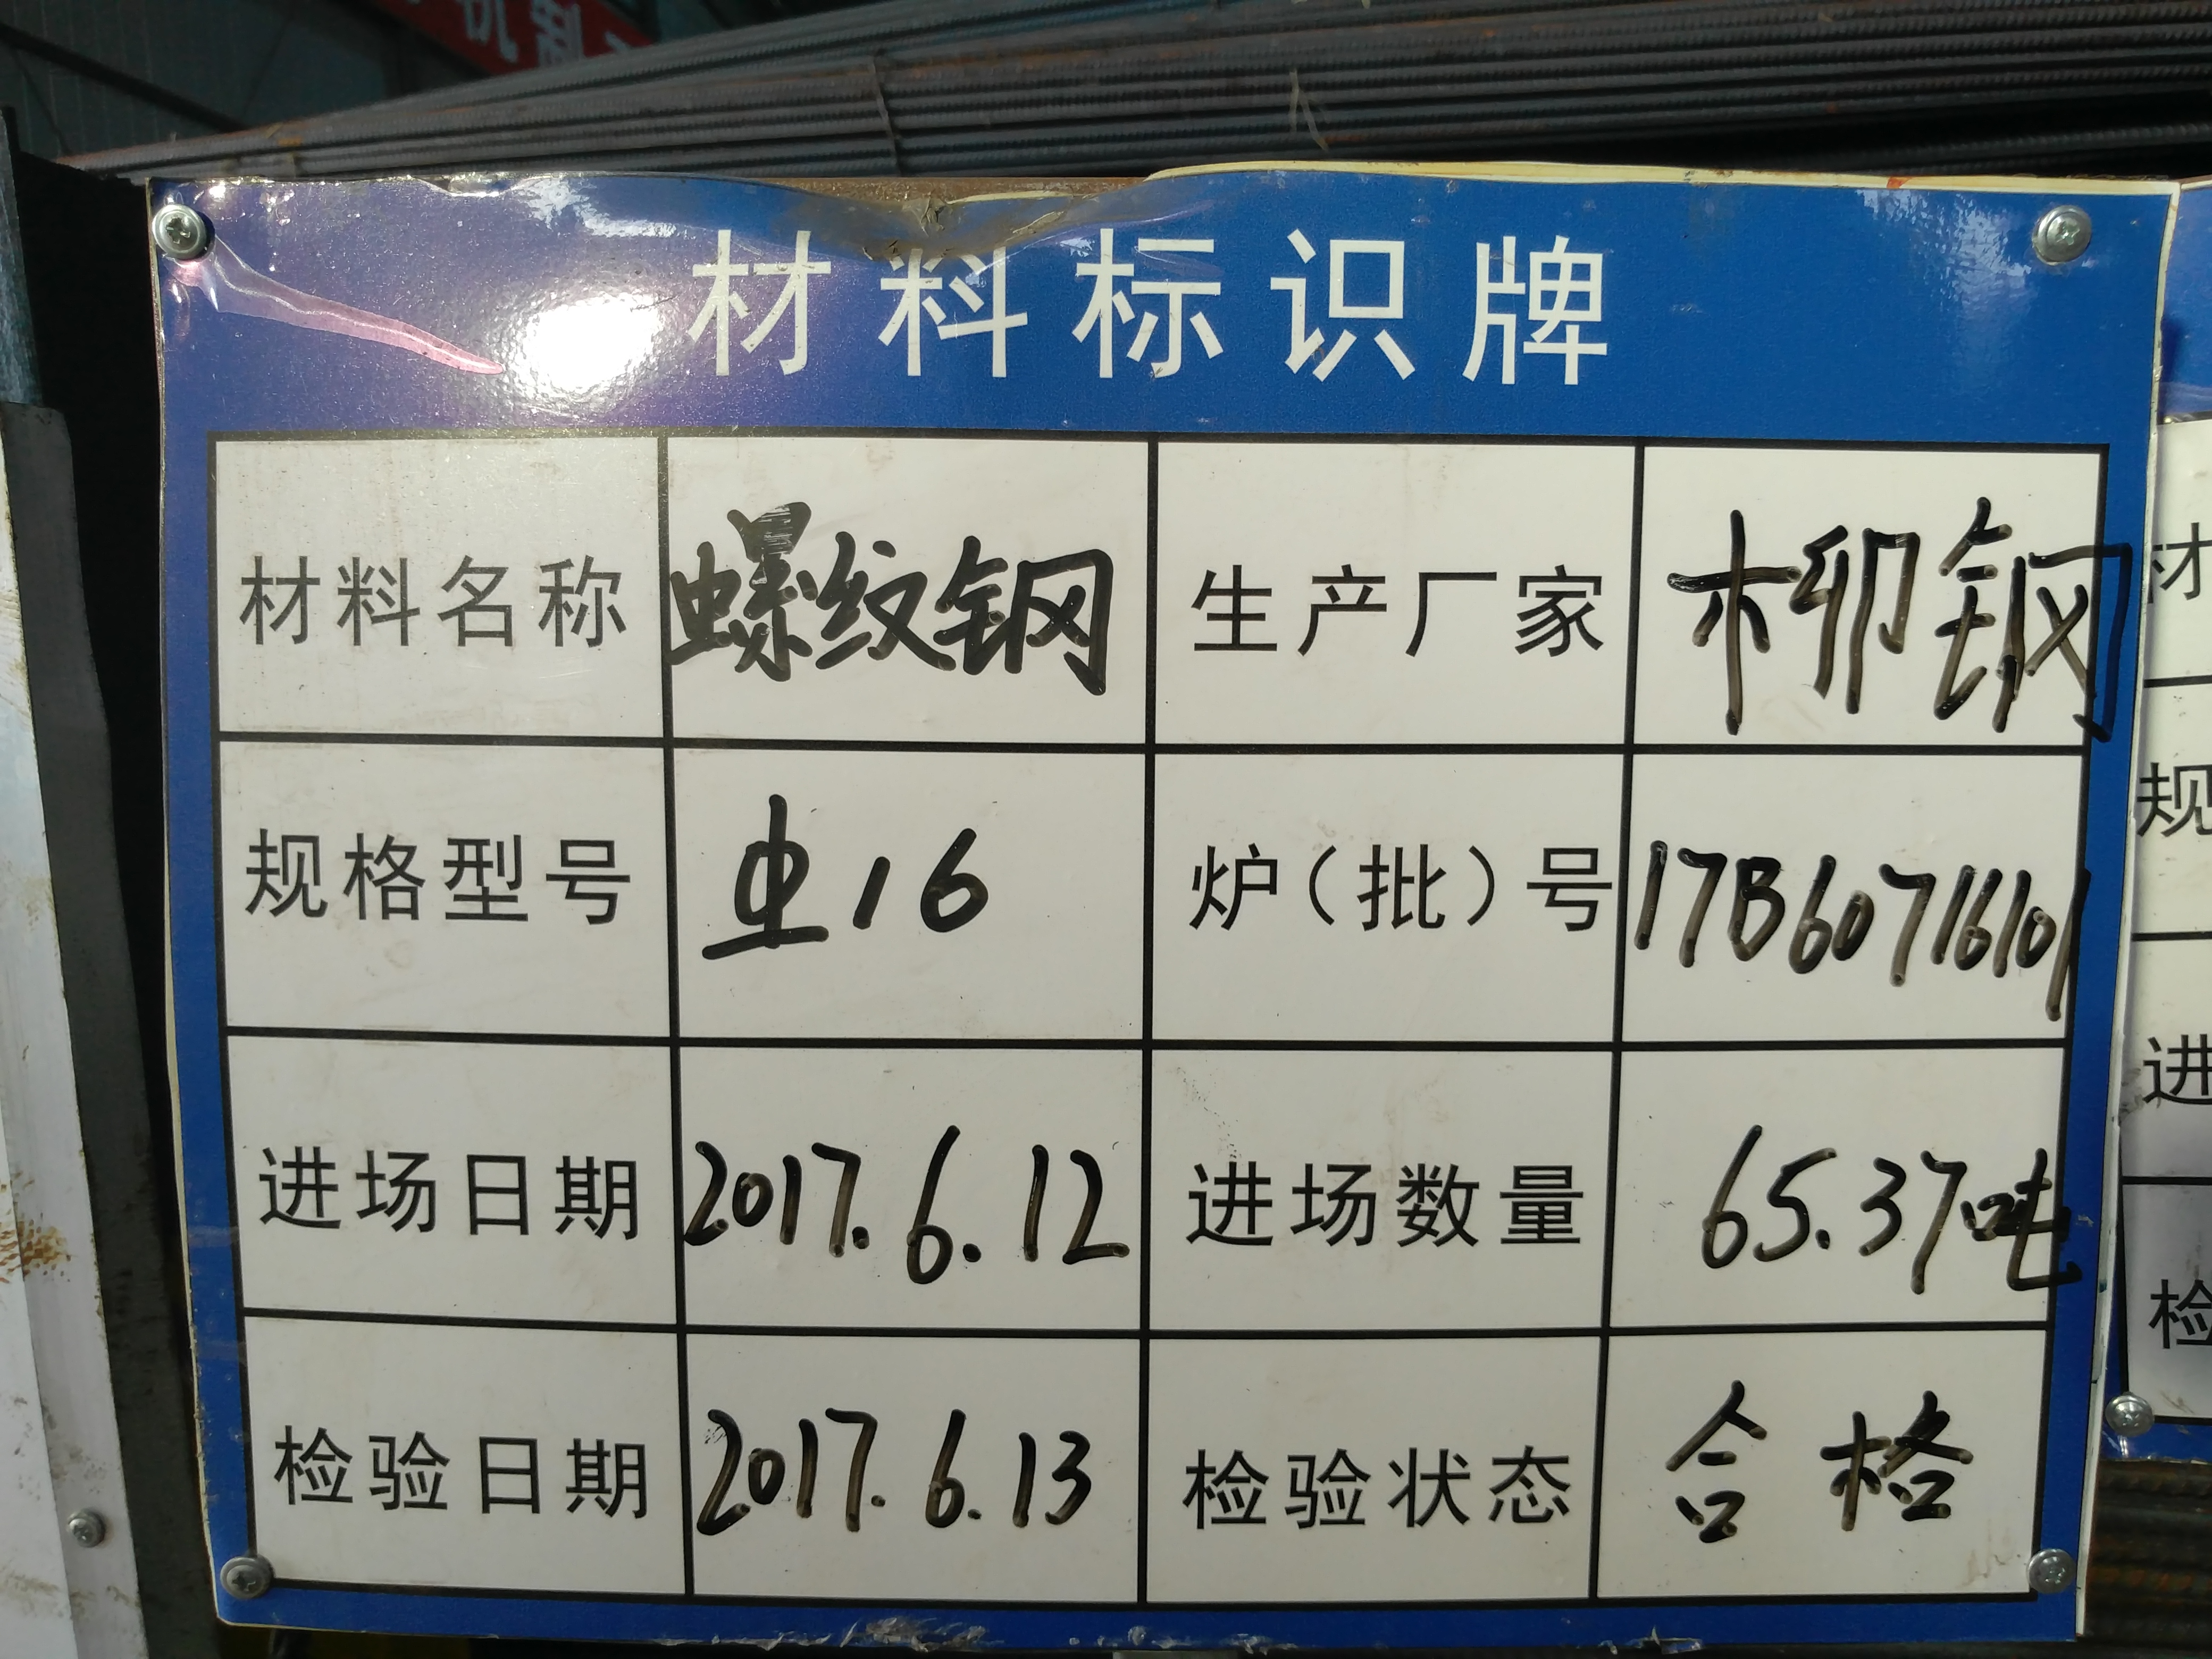 机制
材料标识牌
材料名称 螺纹钢 生产厂家 柳钢
规格型号 ⌀16 炉（批）号 17B60716101
进场日期 2017.6.12 进场数量 65.37吨
检验日期 2017.6.13 检验状态 合格
材
规
进
检